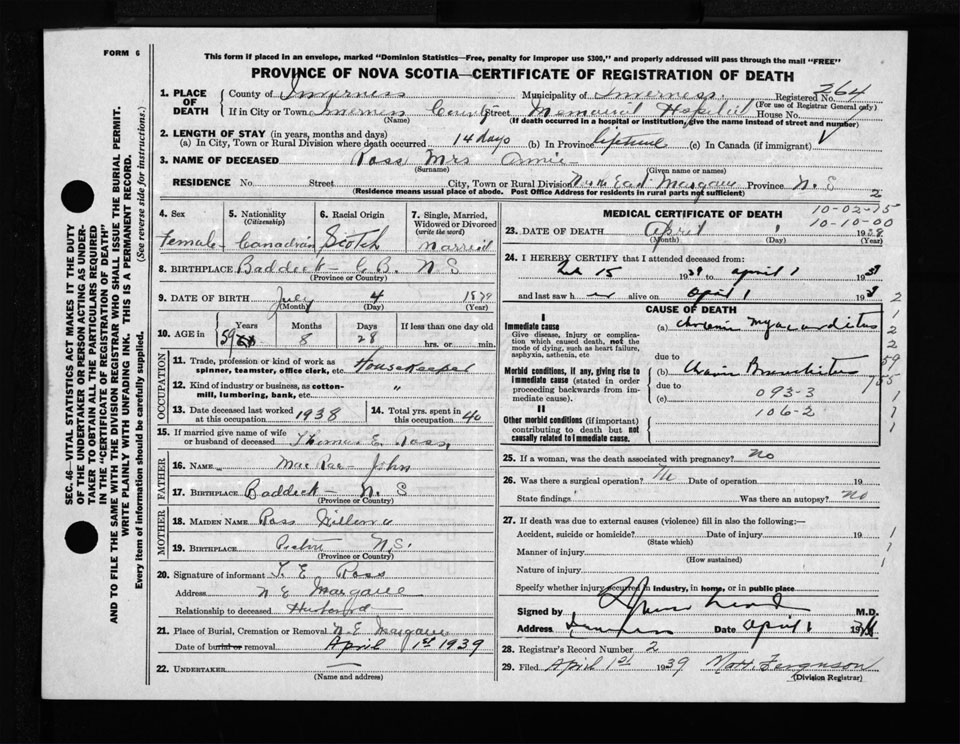 FORM 6
This form if placed in an envelope, marked "Dominion Statistics—Free, penalty for improper use $300," and properly addressed will pass through the mail "FREE"
PROVINCE OF NOVA SCOTIA—CERTIFICATE OF REGISTRATION OF DEATH
1. PLACE OF DEATH
County of Inverness Municipality of Inverness. Registered No. 364
(For use of Registrar General only)
If in City or Town Inverness County Street Memorial Hospital House No.
(Name) (If death occurred in a hospital or institution, give the name instead of street and number)
2. LENGTH OF STAY (in years, months and days)
(a) In City, Town or Rural Division where death occurred 14 days (b) In Province Lifetime (c) In Canada (if immigrant)
3. NAME OF DECEASED Ross Mrs Annie
(Surname) (Given name or names)
RESIDENCE No. Street City, Town or Rural Division North East Margaree Province N.S
(Residence means usual place of abode. Post Office Address for residents in rural parts not sufficient) 2
4. Sex 5. Nationality 6. Racial Origin 7. Single, Married, Widowed or Divorced
(Citizenship) (write the word)
Female Canadian Scotch Married
8. BIRTHPLACE Baddeck C.B. N S
(Province or Country)
9. DATE OF BIRTH July 4 1879
(Month) (Day) (Year)
10. AGE in Years Months Days If less than one day old
59 8 28 hrs. or min.
OCCUPATION
11. Trade, profession or kind of work as spinner, teamster, office clerk, etc. Housekeeper
12. Kind of industry or business, as cotton-mill, lumbering, bank, etc. "
13. Date deceased last worked at this occupation 1938 14. Total yrs. spent in 40
15. If married give name of wife or husband of deceased Thomas E. Ross
FATHER
16. NAME MacRae John
17. BIRTHPLACE Baddeck N. S
(Province or Country)
MOTHER
18. MAIDEN NAME Ross
19. BIRTHPLACE N.S.
(Province or Country)
20. Signature of informant T. E Ross
Address N E Margaree
Relationship to deceased Husband
21. Place of Burial, Cremation or Removal N.E Margaree
Date of burial or removal April 1st 1939
22. UNDERTAKER
(Name and address)
MEDICAL CERTIFICATE OF DEATH
10-02-15
10-10-00
23. DATE OF DEATH April 1 1939
(Month) (Day) (Year)
24. I HEREBY CERTIFY that I attended deceased from:
Feb 15 1939 to April 1 1939
and last saw her alive on April 1 193
CAUSE OF DEATH
I
Immediate cause
Give disease, injury or complication which caused death, not the mode of dying, such as heart failure, asphyxia, asthenia, etc
(a) Chronic Myocarditis
due to
Morbid conditions, if any, giving rise to immediate cause (stated in order proceeding backwards from immediate cause).
(b) Chronic Bronchitis
due to
(c) 093-3
106-2
II
Other morbid conditions (if important) contributing to death but not causally related to immediate cause.
25. If a woman, was the death associated with pregnancy? No
26. Was there a surgical operation? No Date of operation 19
State findings Was there an autopsy? No
27. If death was due to external causes (violence) fill in also the following:—
Accident, suicide or homicide? Date of injury 19
(State which)
Manner of injury
(How sustained)
Nature of injury
Specify whether injury occurred in industry, in home, or in public place
Signed by M.D.
Address Inverness Date April 1
28. Registrar's Record Number 2
29. Filed April 1st 1939 Ferguson
(Division Registrar)
SEC. 46—VITAL STATISTICS ACT MAKES IT THE DUTY OF THE UNDERTAKER OR PERSON ACTING AS UNDERTAKER TO OBTAIN ALL THE PARTICULARS REQUIRED IN THE "CERTIFICATE OF REGISTRATION OF DEATH" AND TO FILE THE SAME WITH THE DIVISION REGISTRAR WHO SHALL ISSUE THE BURIAL PERMIT.
WRITE PLAINLY WITH UNFADING INK. THIS IS A PERMANENT RECORD.
Every item of information should be carefully supplied. (See reverse side for instructions.)